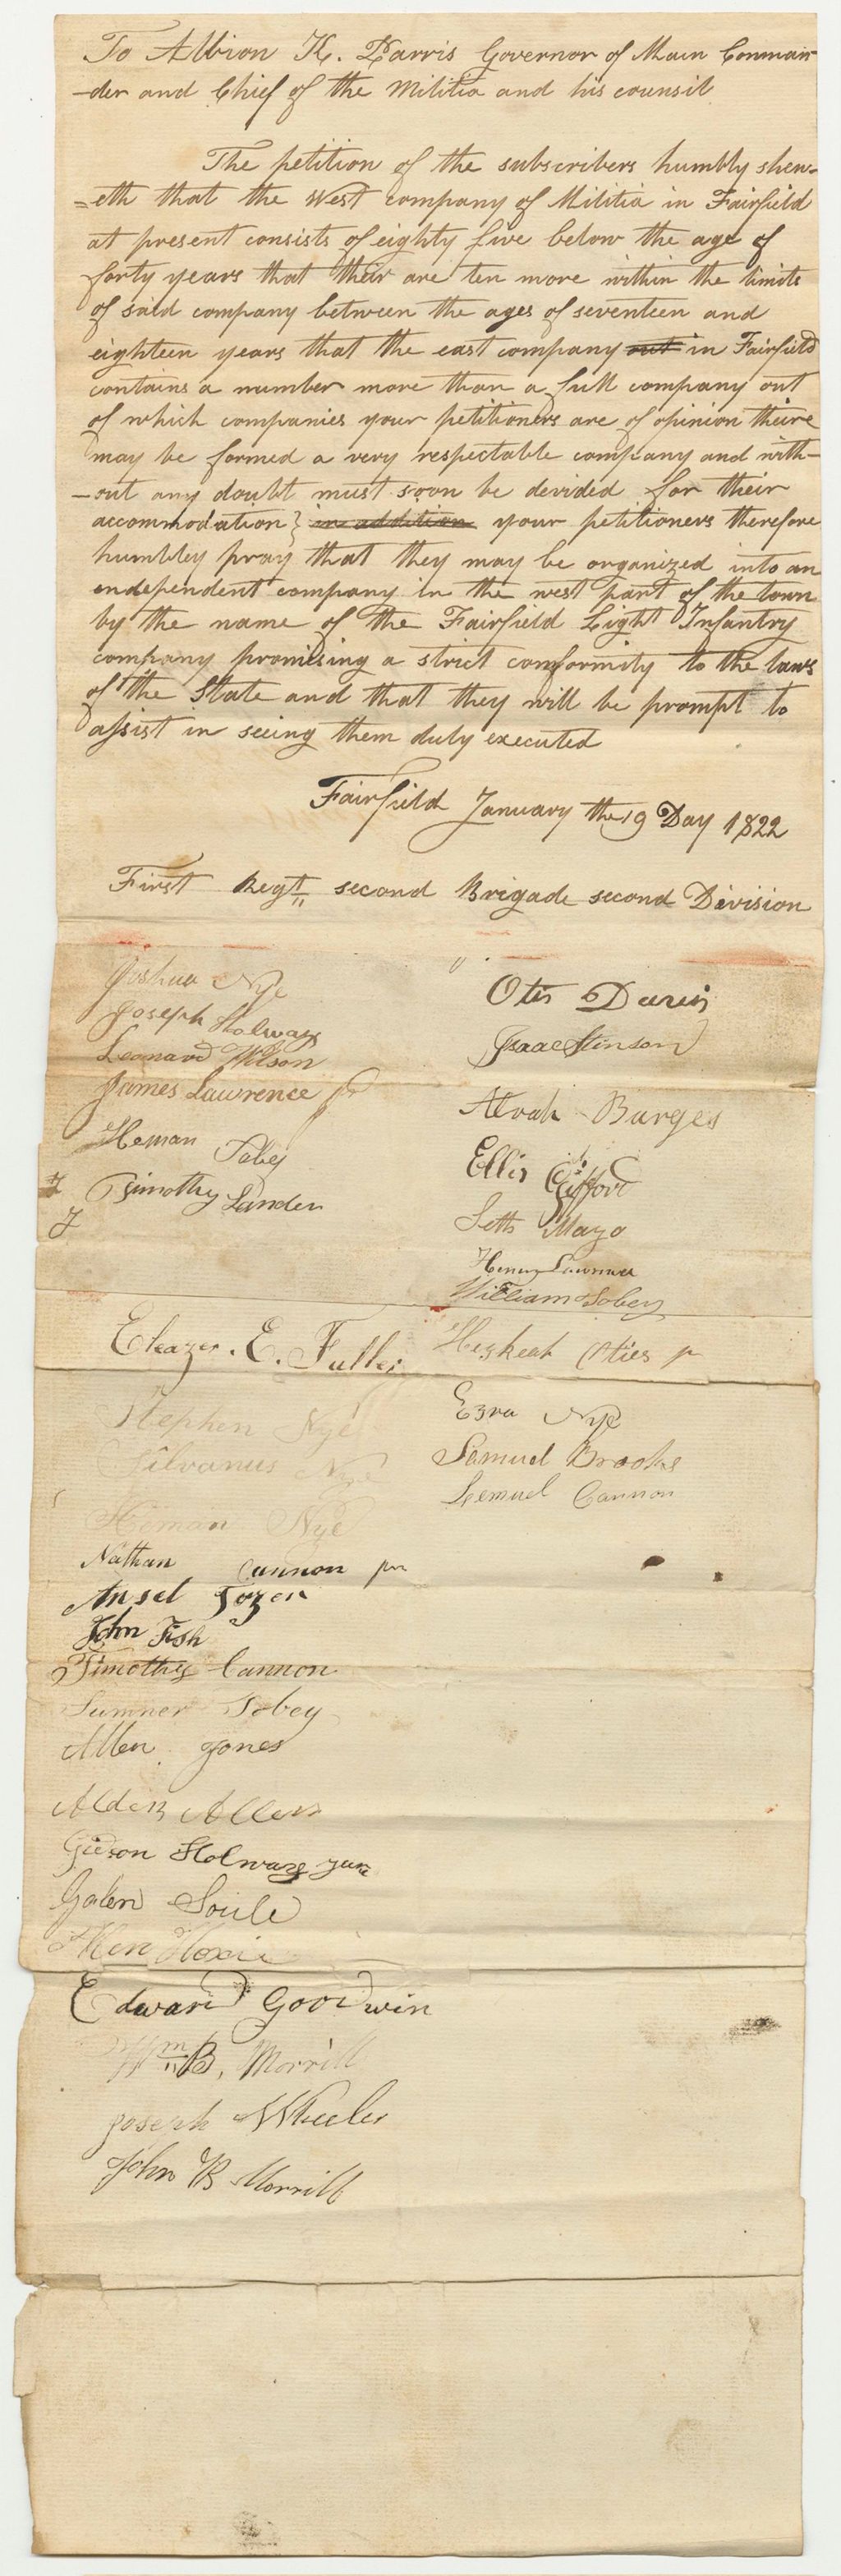 To Albion K. Parris Governor of Main Comman
-der and Chief of the Militia and his counsil
The petition of the subscribers humbly shew-
=eth that the West company of Militia in Fairfield
at present consists of eighty five below the age of
forty years that their are ten more within the limits
of said company between the ages of seventeen and
eighteen years that the east company out in Fairfield
contains a number more than a full company out
of which companies your petitioners are of opinion theire
may be formed a very respectable company and with-
-out any doubt must soon be devided for their
accommodation} in addition your petitioners therefore
humbley pray that they may be organized into an
endependent company in the west part of the town
by the name of the Fairfield Light Infantry
company promising a strict conformity to the laws
of the State and that they will be prompt to
assist in seeing them duly executed
Fairfield January the 19 Day 1822
First Regt second Brigade second Division
Joshua Nye
Joseph Holway
Leonard Wilson
James Lawrence Jr
Heman Tobey
Timothy Landers
Eleazer. E. Fuller
Stephen Nye
Silvanus Nye
Heman Nye
Nathan Cannon jun
Ansel Tozer
John Fish
Timothy Cannon
Sumner Tobey
Allen Jones
Alden Allen
Gideon Holway junr
Galen Soule
Hoxie
Edward Goodwin
Wm B. Morrill
Joseph Wheeler
John B Morrill
Otis
Isaac Stinson
Alvah Burges
Ellis Gifford
Seth Mayo
Henry Lawrence
William Tobey
Heskeah Oties jr
Ezra Nye
Samuel Brooks
Lemuel Cannon